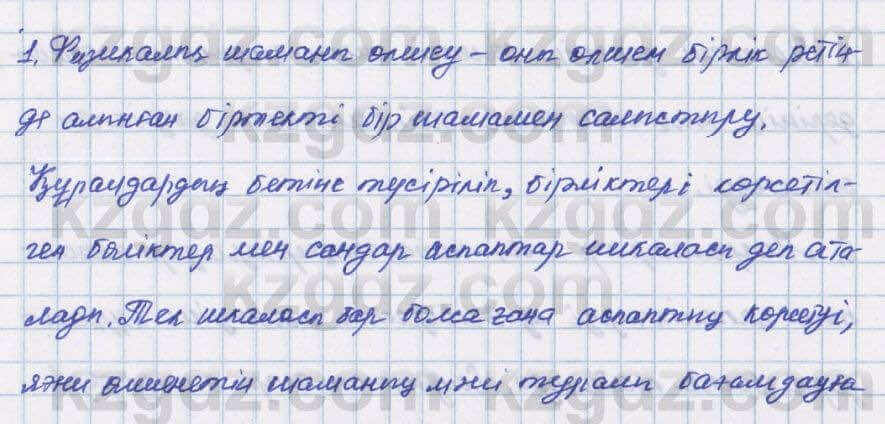 1. Физикалық шаманы өлшеу – оны өлшем бірлік ретін-
де алынған біртекті бір шамамен салыстыру.
Құралдардың бетіне түсіріліп, бірліктері көрсетіл-
ген бөліктер мен сандар аспаптар шкаласы деп ата-
лады. Тек шкаласы бар болса ғана аспаптың көрсетуі,
яғни өлшенетін шаманың мәні туралы бағамдауға
kzgdz.com kzgdz.com